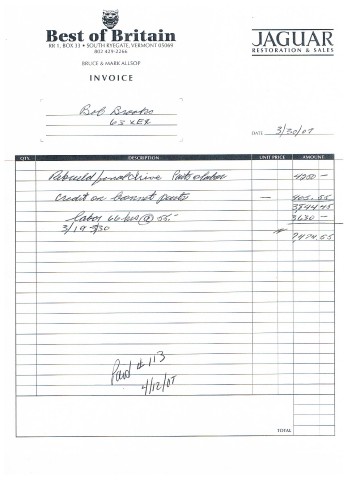 Best of Britain
RR 1, BOX 33 • SOUTH RYEGATE, VERMONT 05069
802 429-2266
BRUCE & MARK ALLSOP
INVOICE
JAGUAR
RESTORATION & SALES
Bob Brooks
63 XKE
DATE 3/30/07
QTY. DESCRIPTION UNIT PRICE AMOUNT
Rebuild front drive Parts & labor 4250 —
Credit on bonnet parts — 405.55
3844.45
labor 66 hrs @ 55.- 3630 —
3/19-3/30
7474.55
Paid # 113
4/12/07
TOTAL